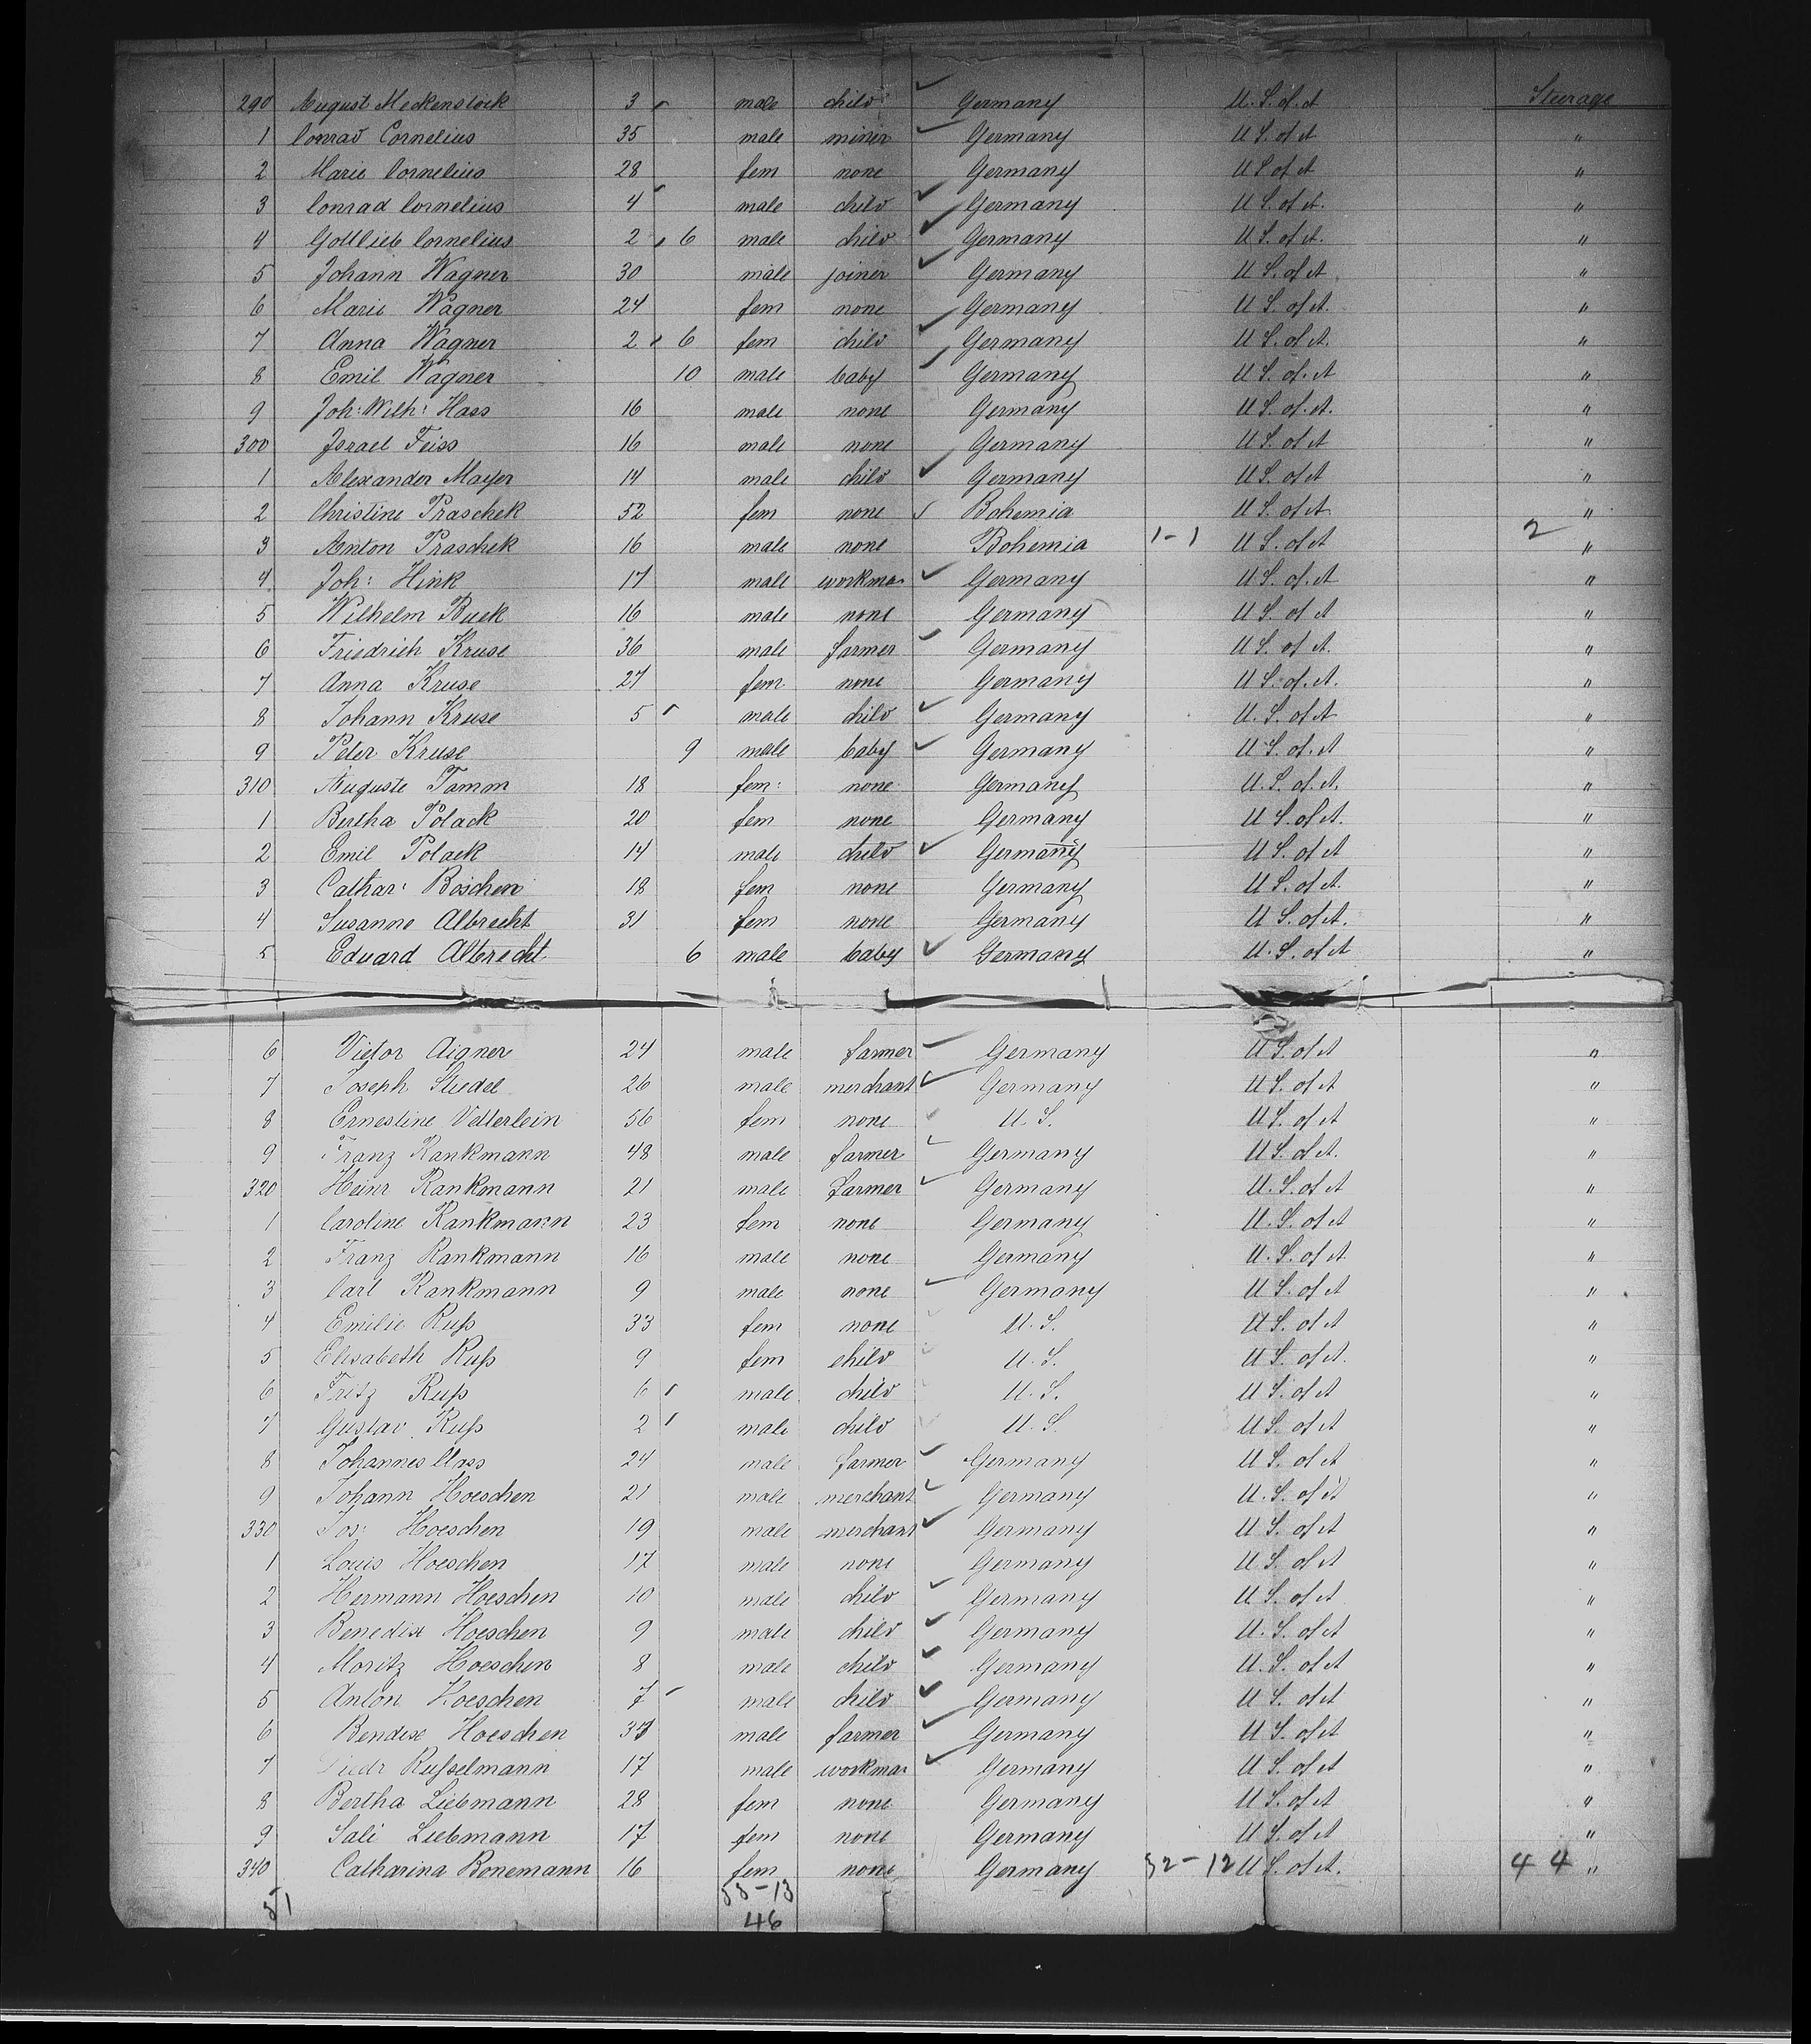 290 August Meckenstock 3 male child Germany U.S. of A Steerage
1 Conrad Cornelius 35 male miner Germany U.S. of A "
2 Marie Cornelius 28 fem none Germany U.S. of A "
3 Conrad Cornelius 4 male child Germany U.S. of A. "
4 Gottlieb Cornelius 2 6 male child Germany U.S. of A. "
5 Johann Wagner 30 male joiner Germany U.S. of A "
6 Marie Wagner 24 fem none Germany U.S. of A. "
7 Anna Wagner 2 6 fem child Germany U.S. of A. "
8 Emil Wagner 10 male baby Germany U.S. of A "
9 Joh: Wilh: Hass 16 male none Germany U.S. of A. "
300 Israel Feiss 16 male none Germany U.S. of A "
1 Alexander Mayer 14 male child Germany U.S. of A "
2 Christine Praschek 52 fem none Bohemia U.S. of A "
3 Anton Praschek 16 male none Bohemia 1-1 U.S. of A 2 "
4 Joh: Hink 17 male workman Germany U.S. of A "
5 Wilhelm Buck 16 male none Germany U.S. of A "
6 Friedrich Kruse 36 male farmer Germany U.S. of A. "
7 Anna Kruse 27 fem none Germany U.S. of A. "
8 Johann Kruse 5 male child Germany U.S. of A "
9 Peter Kruse 9 male baby Germany U.S. of A "
310 Auguste Tamm 18 fem: none Germany U.S. of A. "
1 Bertha Polack 20 fem none Germany U.S. of A. "
2 Emil Polack 14 male child Germany U.S. of A "
3 Cathar: Boschen 18 fem none Germany U.S. of A. "
4 Susanne Albrecht 31 fem none Germany U.S. of A. "
5 Eduard Albrecht 6 male baby Germany U.S. of A "
6 Victor Aigner 24 male farmer Germany U.S. of A "
7 Joseph 26 male merchant Germany U.S. of A "
8 Ernestine Vetterlein 56 fem none U.S. U.S. of A "
9 Franz Rankmann 48 male farmer Germany U.S. of A. "
320 Heinr Rankmann 21 male farmer Germany U.S. of A "
1 Caroline Rankmann 23 fem none Germany U.S. of A "
2 Franz Rankmann 16 male none Germany U.S. of A "
3 Carl Rankmann 9 male none Germany U.S. of A "
4 Emilie Ruß 33 fem none U.S. U.S. of A "
5 Elisabeth Ruß 9 fem child U.S. U.S. of A. "
6 Fritz Ruß 6 male child U.S. U.S. of A "
7 Gustav Ruß 2 male child U.S. U.S. of A "
8 Johannes 24 male farmer Germany U.S. of A "
9 Johann Hoeschen 21 male merchant Germany U.S. of A "
330 Jos: Hoeschen 19 male merchant Germany U.S. of A "
1 Louis Hoeschen 17 male none Germany U.S. of A "
2 Hermann Hoeschen 10 male child Germany U.S. of A "
3 Benedix Hoeschen 9 male child Germany U.S. of A "
4 Moritz Hoeschen 8 male child Germany U.S. of A "
5 Anton Hoeschen 7 male child Germany U.S. of A "
6 Bendix Hoeschen male farmer Germany U.S. of A "
7 Diedr Rußelmann 17 male workman Germany U.S. of A "
8 Bertha Liebmann 28 fem none Germany U.S. of A "
9 Sali Liebmann 17 fem none Germany U.S. of A "
340 Catharina Bonemann 16 fem none Germany 32-12 U.S. of A. 44 "
51 -13
46